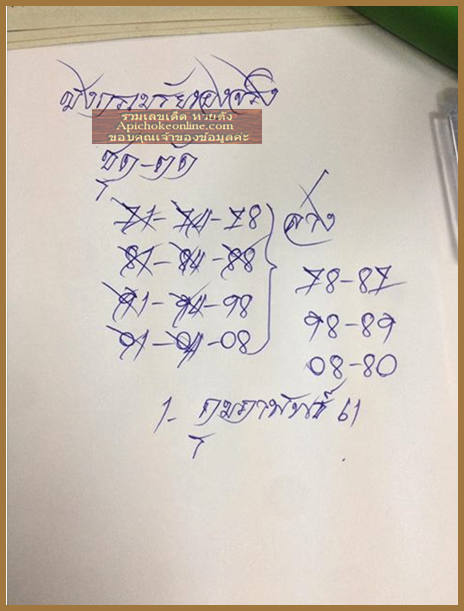 รวมเลขเด็ด หวยดัง
Apichokeonline.com
ขอบคุณเจ้าของข้อมูลค่ะ
ชุด-ตัด
71-74-78
81-84-88
91-94-98
01-04-08
ล่าง
78-87
98-89
08-80
1- กุมภาพันธ์ 61